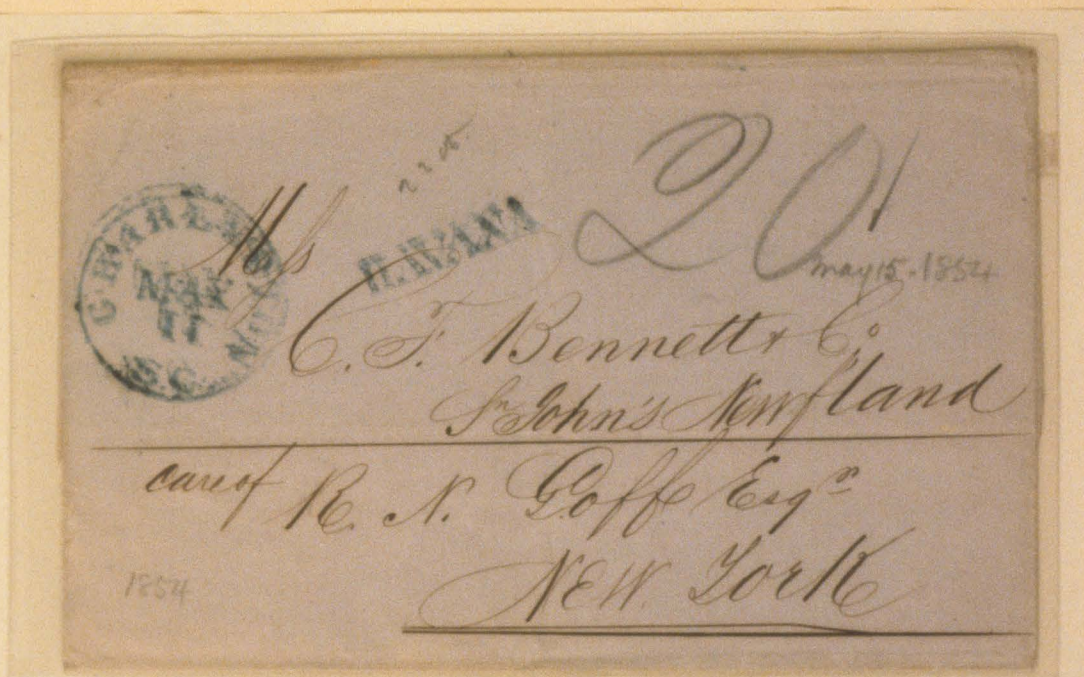 CHARLESTON
MAY
S.C.
HAVANA
20
may 15. 1854
C. F. Bennett & Co
St John's Newfland
care of R. N. Goff Esqr
New York
1854